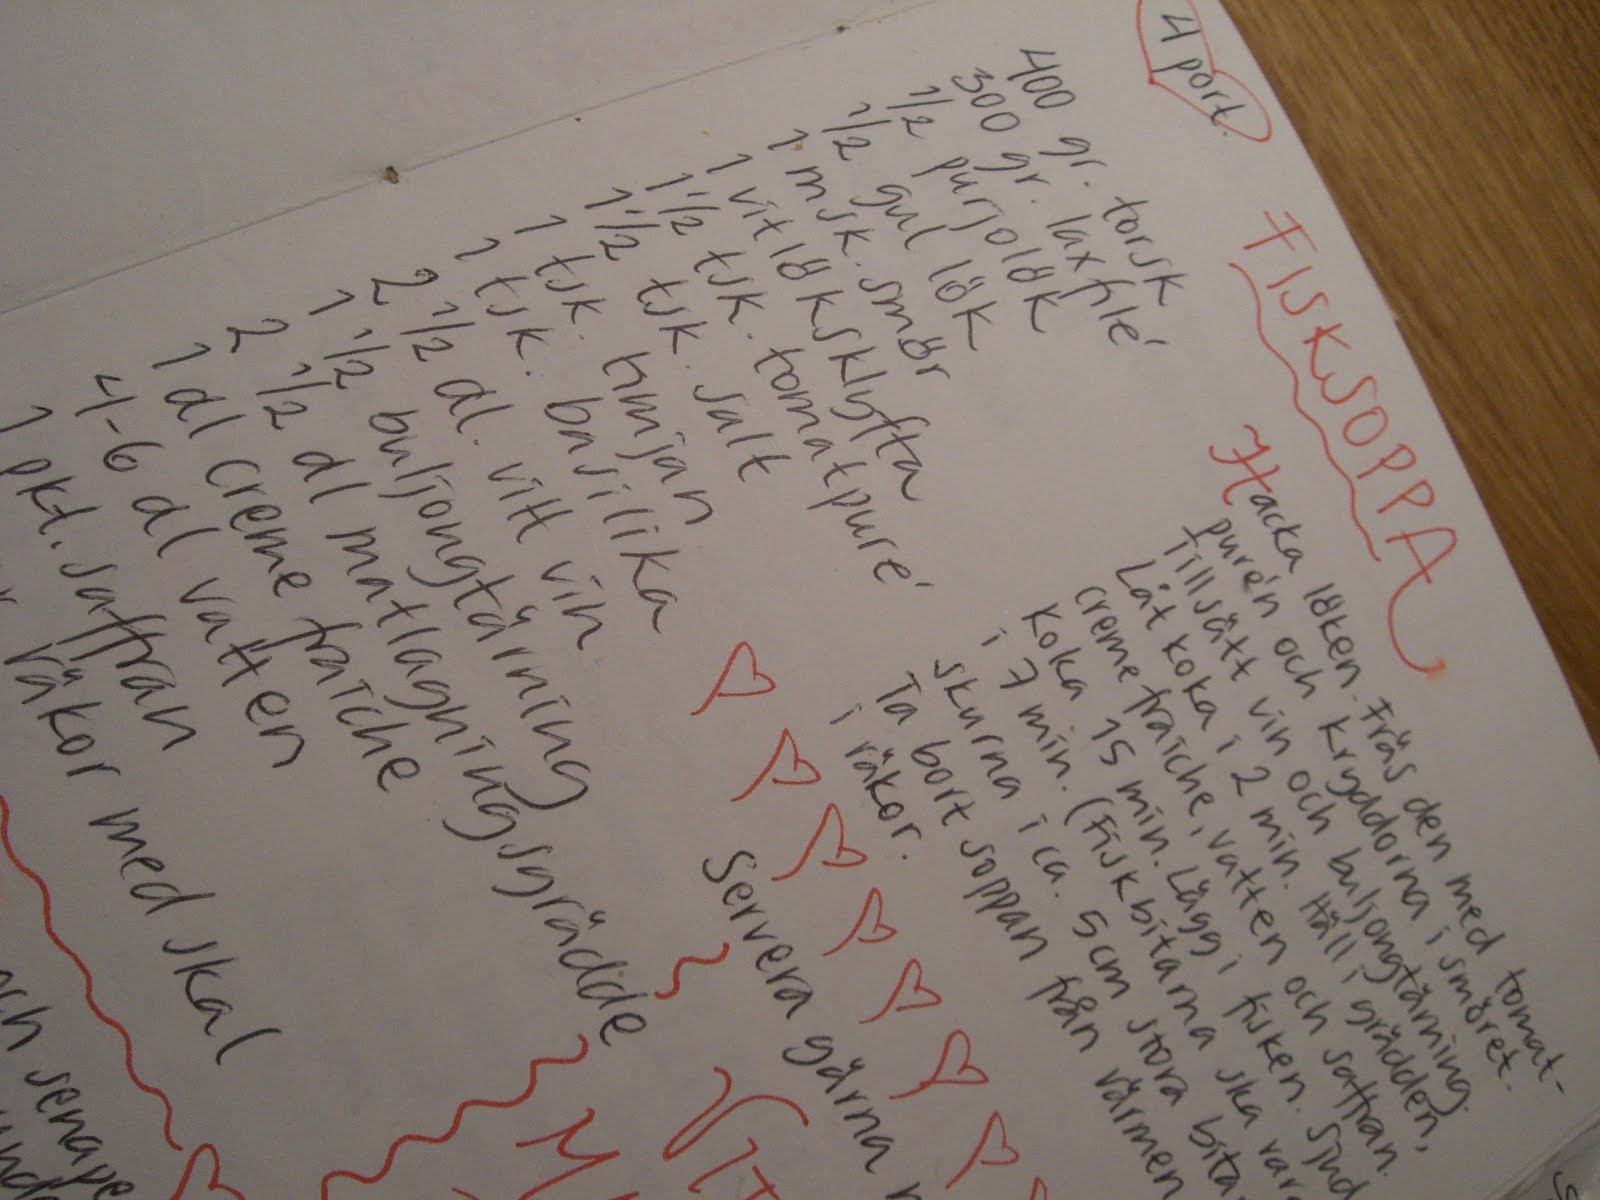 4 port.
FISKSOPPA
400 gr. torsk
300 gr. laxfilé
1/2 purjolök
1/2 gul lök
1 msk. smör
1 vitlöksklyfta
1 1/2 tsk. tomatpuré
1 1/2 tsk. salt
1 tsk. timjan
1 tsk. basilika
2 1/2 dl. vitt vin
1 1/2 buljongtärning
2 1/2 dl matlagningsgrädde
1 dl creme fraiche
4-6 dl vatten
1 pkt. saffran
räkor med skal
Hacka löken. Fräs den med tomat-
purén och kryddorna i smöret.
Tillsätt vin och buljongtärning.
Låt koka i 2 min. Häll i grädden,
creme fraiche, vatten och saffran.
Koka 15 min. Lägg i fisken. Sjud
i 7 min. (Fiskbitarna ska var
skurna i ca. 5cm stora bita
Ta bort soppan från värmen
i räkor.
Servera gärna
och senape